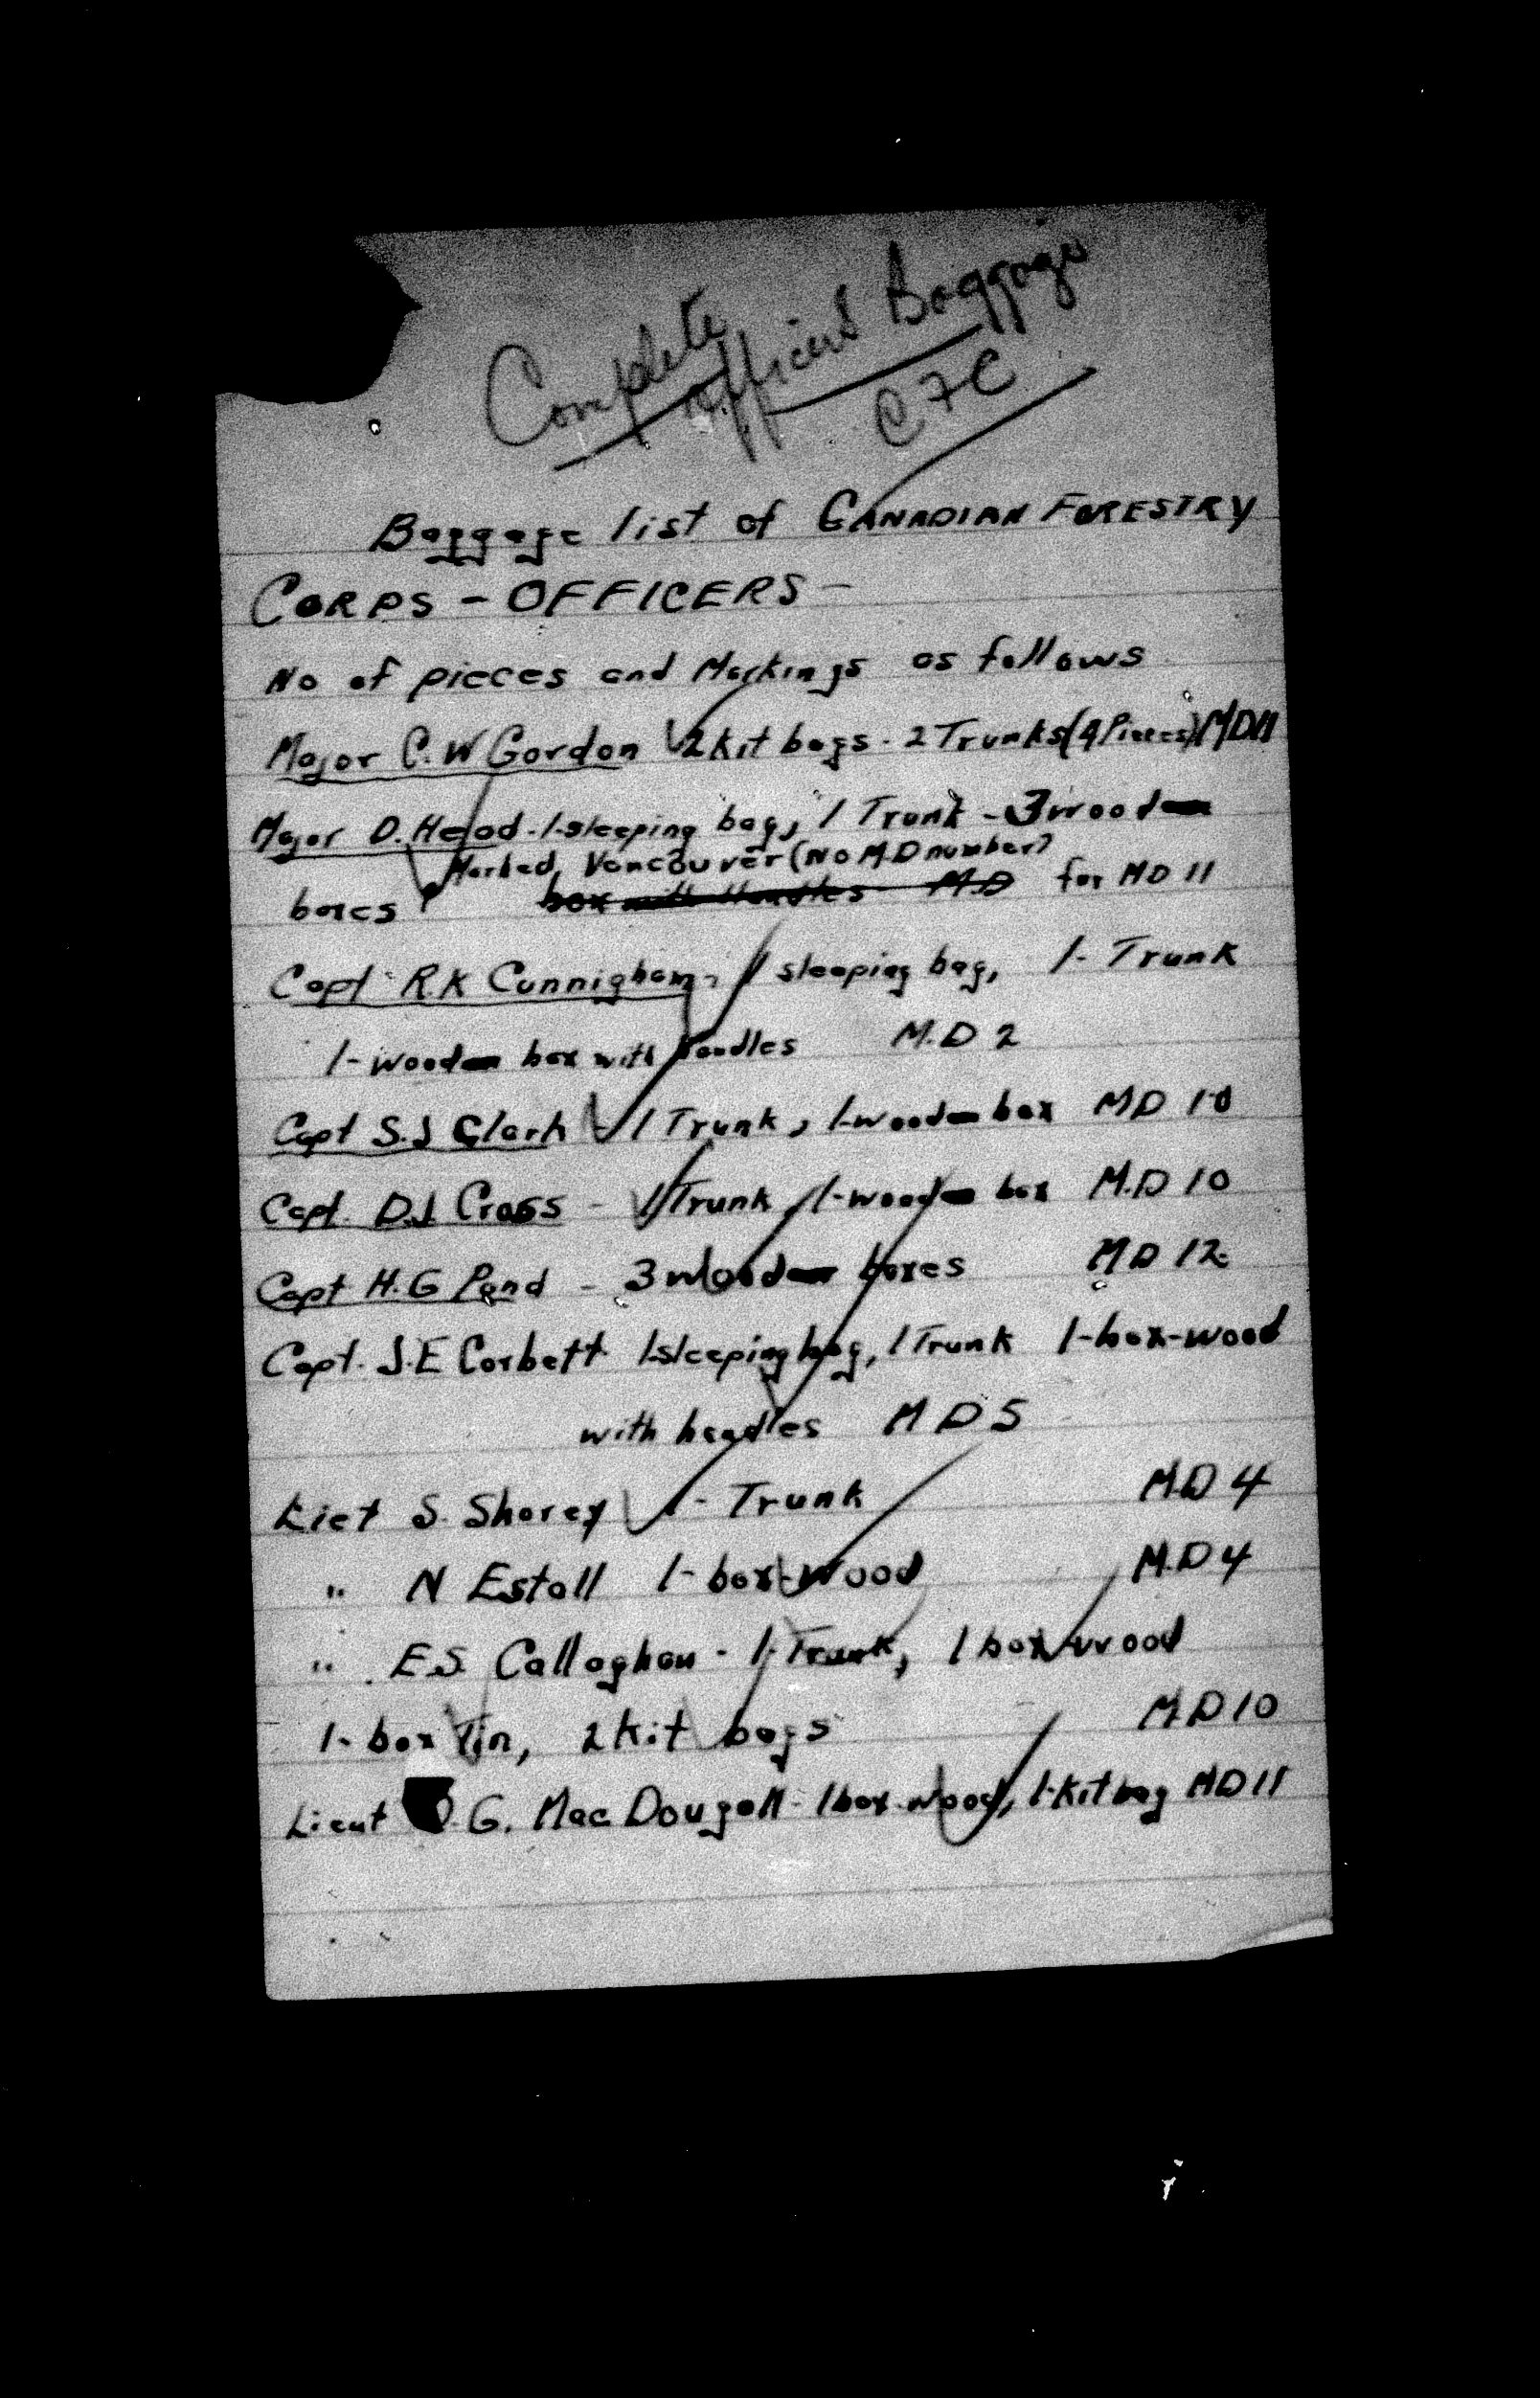 Complete
Officers Baggage
C F C
Baggage list of CANADIAN FORESTRY
CORPS - OFFICERS -
No of pieces and Markings as follows
Major C. W Gordon 2 kit bags - 2 Trunks (4 Pieces) MD11
Major D. Head - 1-sleeping bag, 1 Trunk - 3 wooden
Marked, Vancouver (No M.D number)
boxes box with Handles M.D for MD 11
Capt R.K Cunnigham, 1 sleeping bag, 1- Trunk
1- wooden box with handles M.D 2
Capt S.J Clark 1 Trunk, 1-wooden box MD 10
Capt. D.J. Cross - 1 Trunk, 1-wooden box M.D 10
Capt H.G Pond - 3 wooden boxes MD 12
Capt. J.E Corbett 1-sleeping bag, 1 Trunk 1-box-wood
with handles M D 5
Liet S. Shorey 1 - Trunk M.D 4
" N Estall 1- box-wood M.D 4
" E.S. Callaghan - 1-Trunk, 1 box wood
1- box Tin, 2 kit bags M D 10
Lieut G. MacDougall - 1 box-wood, 1-kitbag MD 11